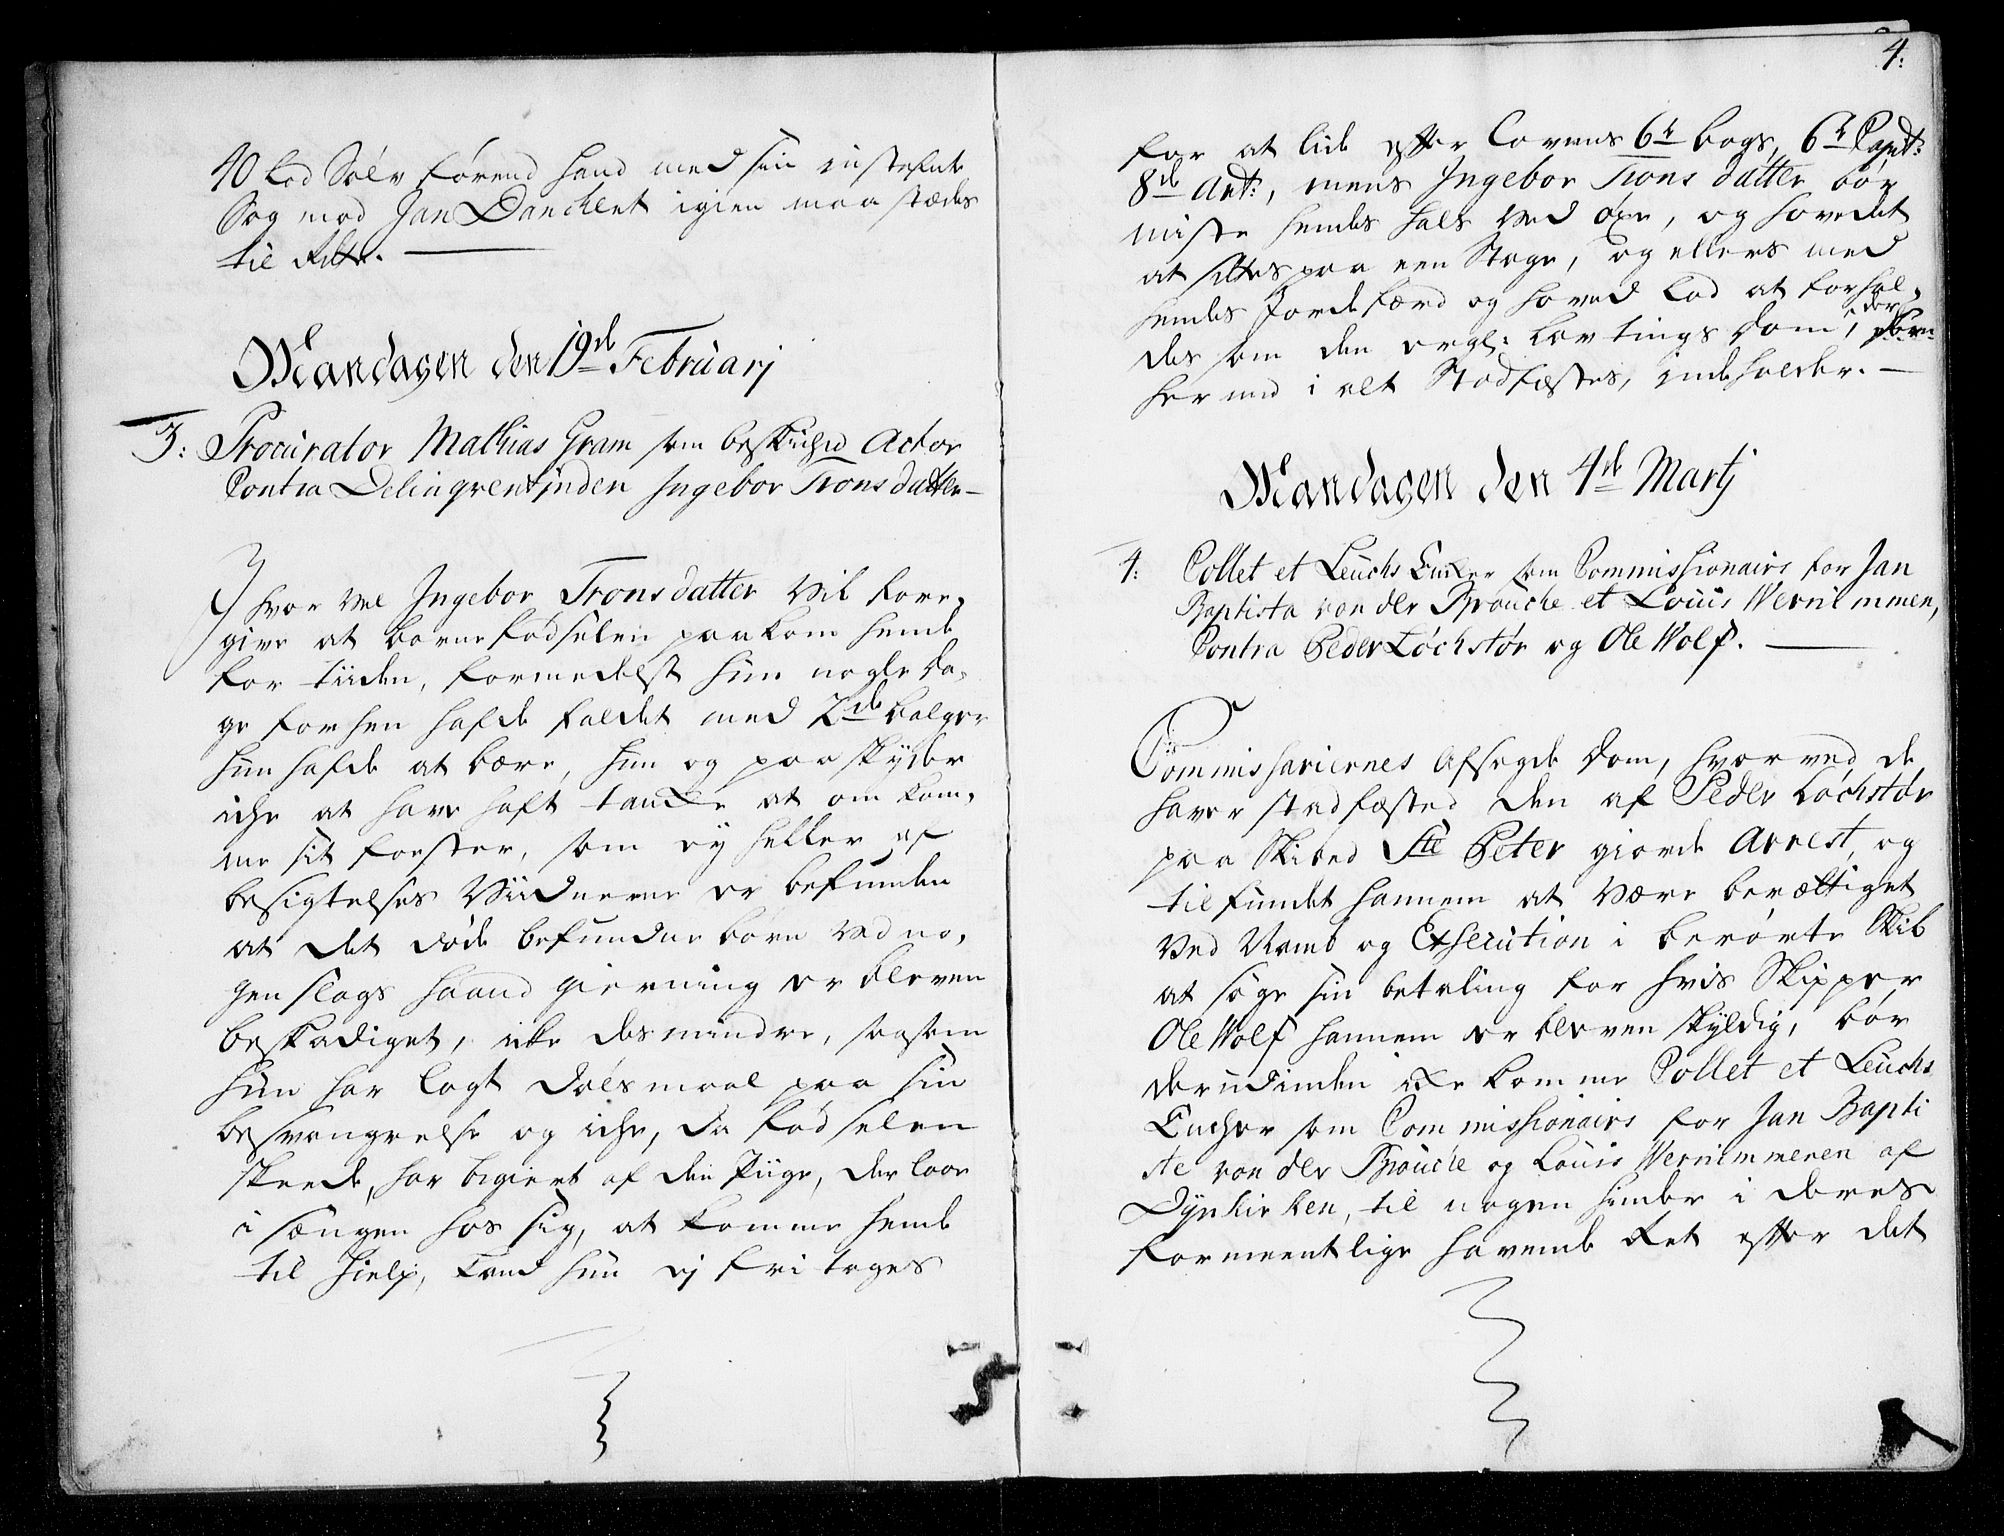 40 Lod Sølv førend hand med sin instefnte
Sag mod Jan Danckert igien maa stædes
til Rette.
Mandagen den 19de Februarj
3: Procurator Mathias Gram som beskicket Actor
Contra Delinqventinden Ingebor Tronsdatter
Ihvor vel Ingebor Tronsdatter vil fore-
give at barnefødselen paakom hende
for tiiden, formedelst hun nogle da-
ge forhen hafde faldet med 2de balger
hun hafde at bære, hun og paaskyder
icke at have haft tancke at omkom-
me sit foster, som ey heller af
besigtelses Viidnerne er befunden
at det døde befundne barn ved no-
gen slags haand gierning er bleven
beskadiget, icke desmindre, saasom
hun har lagt dølsmaal paa sin
besvangrelse og icke, da fødselen
skeede, har begiert af den Piige, der laae
i sængen hos sig, at komme hende
til hielp, kand hun ej fritages
4:
for at lide efter Lovens 6te bogs, 6te Capit:
8de Art:, mens Ingebor Tronsdatter bør
miste hendes hals ved øxe, og hovedet
at settes paa een Stage, og ellers med
hendes Jordefærd og hoved Lod at forhol-
des som den ergl: Lavtings dom, der
her med i alt Stadfæstes, indeholder.
Mandagen den 4de Martj
4: Collet et Leuchs Encker som Commissionairs for Jan
Baptista von der Brouche et Louis Wernimmen,
Contra Peder Lochstør og Ole Wolf.
Commissariernes Afsagde dom, hvorved de
haver stadfæsted den af Peder Lochstør
paa Skibed Ste Peter giorde Arrest, og
tilfundet hannem at være berættiget
ved Namb og Exsecution i berørte Skib
at søge sin betaling for hvis Skipper
Ole Wolf hannem er bleven skyldig, bør
derudinden icke komme Collet et Leuchs
Encker som Commissionairs for Jan Bapti
ste von der Brouche og Louis Wernimmenen af
Dynkirken, til nogen hinder i deres
formeentlige havende Ret efter det